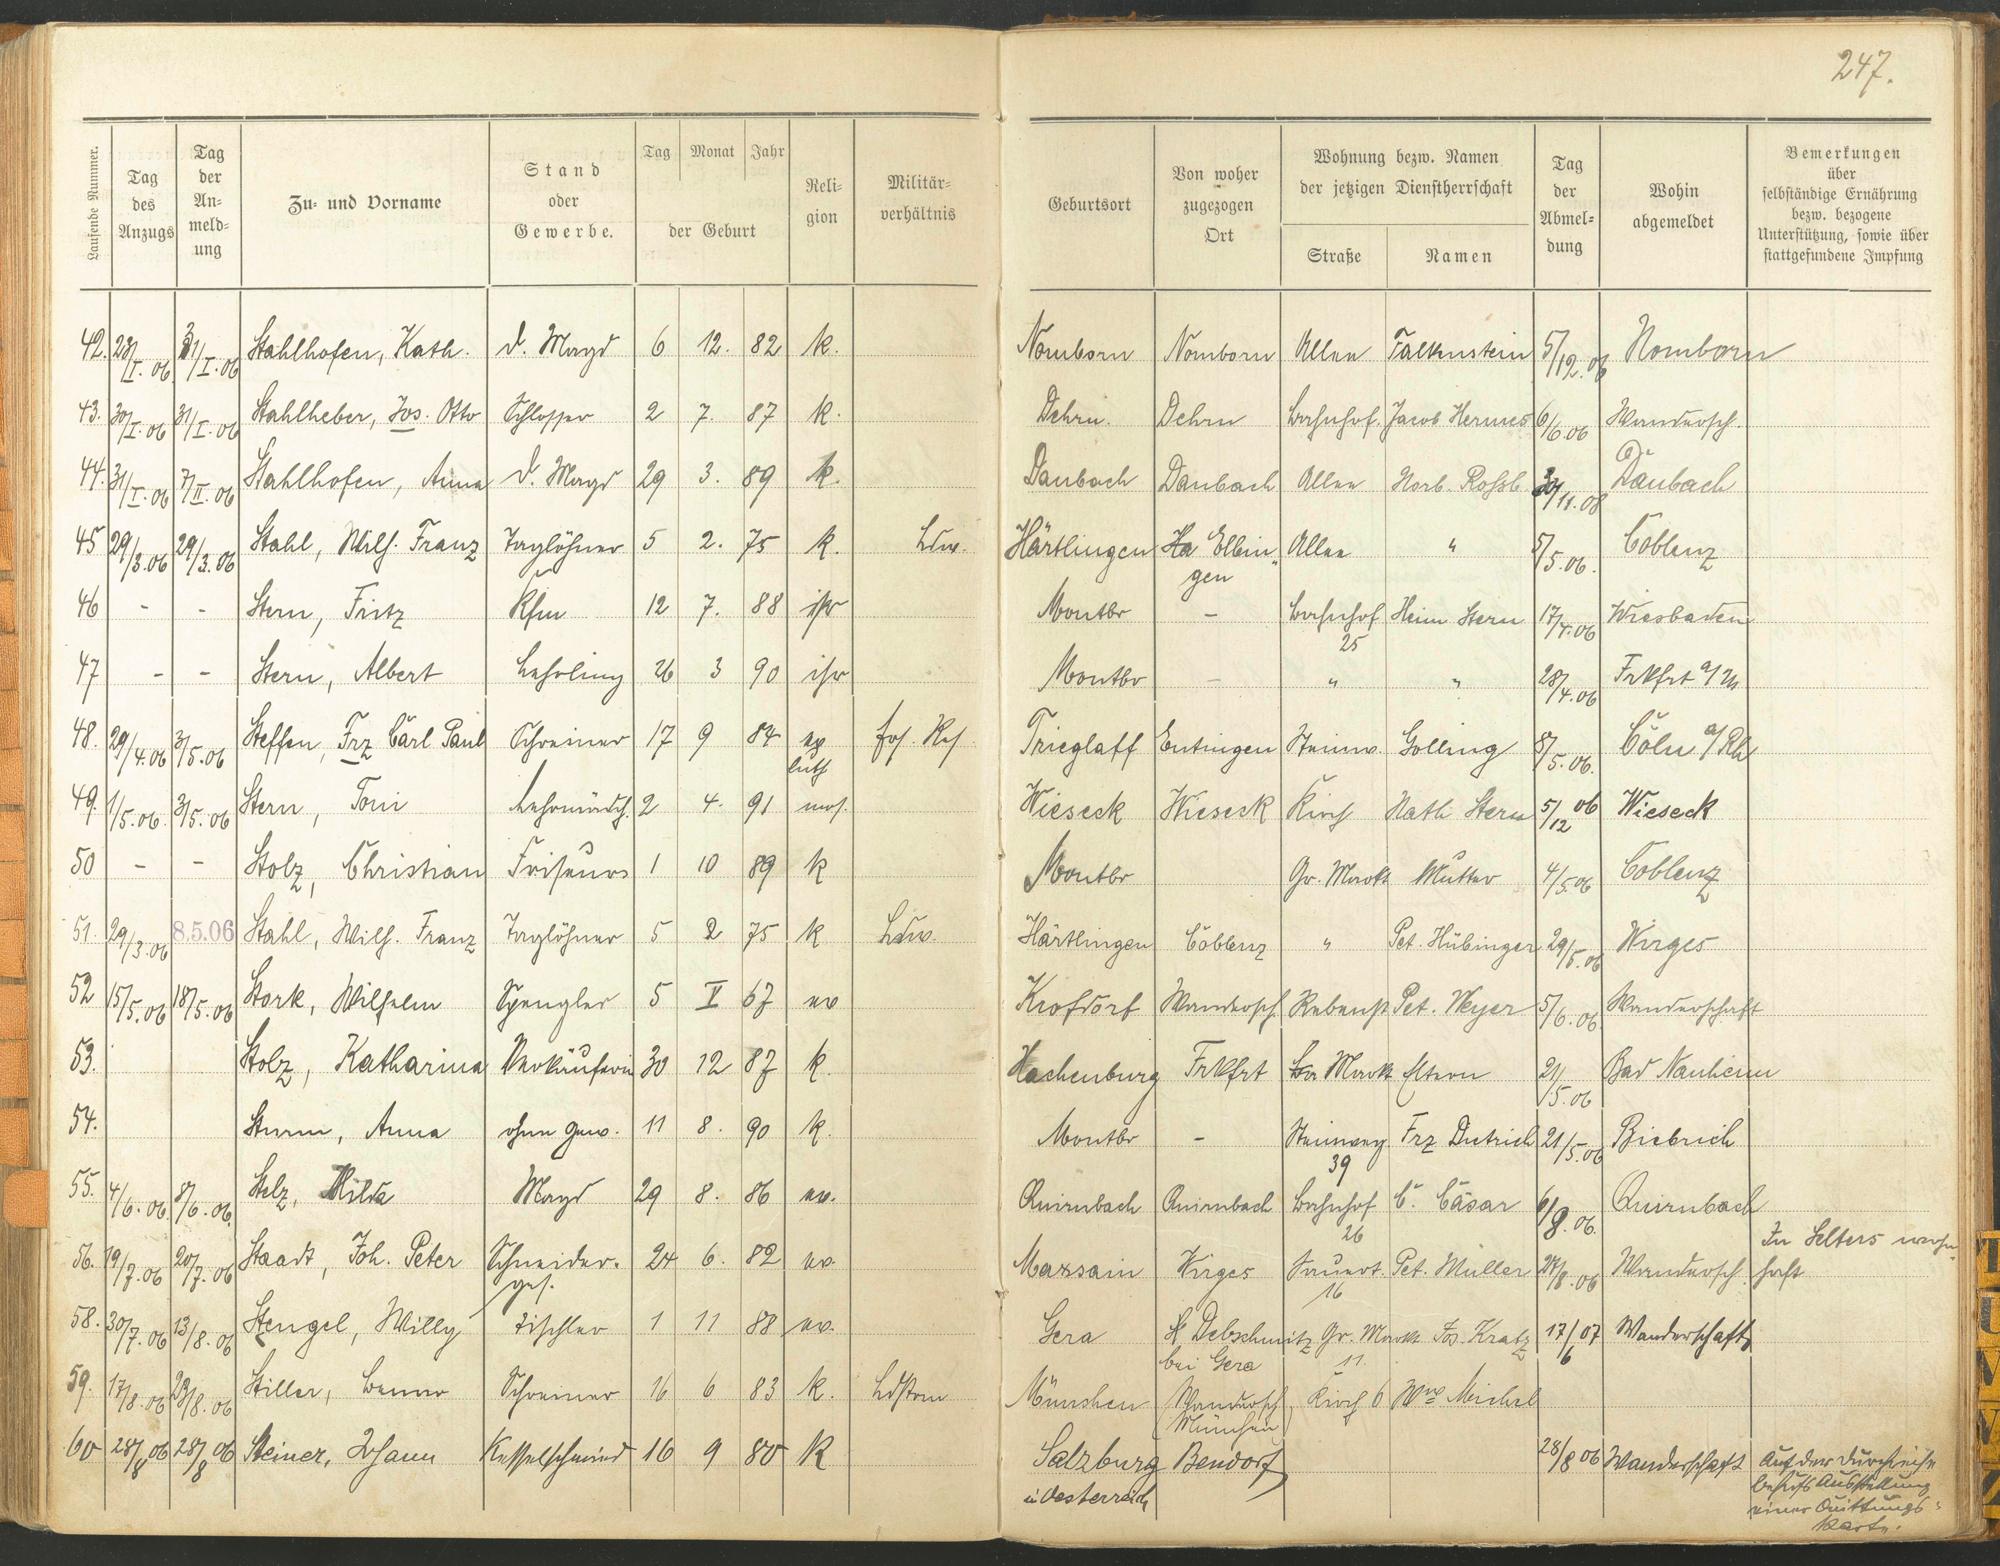 247.
Laufende Nummer.
Tag des Anzugs
Tag der Anmeldung
Zu- und Vorname
Stand oder Gewerbe.
Tag Monat Jahr
der Geburt
Religion
Militärverhältnis
Geburtsort
Von woher zugezogen Ort
Wohnung bezw. Namen der jetzigen Dienstherrschaft
Straße Namen
Tag der Abmeldung
Wohin abgemeldet
Bemerkungen über selbständige Ernährung bezw. bezogene Unterstützung, sowie über stattgefundene Impfung
42. 28/I. 06 31/I. 06 Stahlhofen, Kath. d. Magd 6 12. 82 k. Nomborn Nomborn Allee Falkenstein 5/12. 06 Nomborn
43. 30/I. 06 31/I. 06 Stahlheber, Jos. Otto Schlosser 2 7. 87 k. Dehrn. Dehrn Bahnhof. Jacob Hermes 6/6.06 Wandersch.
44. 31/I. 06 7/II. 06 Stahlhofen, Anna d. Magd 29 3. 89 k. Daubach Daubach Allee Norb. Roßb 30/11.08 Daubach
45 29/3.06 29/3.06 Stahl, Wilh. Franz Taglöhner 5 2. 75 k. Ldw. Härtlingen Ellin„ Allee " 5/5.06. Coblenz
gen
46 - - Stern, Fritz Kfm 12 7. 88 isr Montbr - Bahnhof Heim Stern 17/4.06 Wiesbaden
25
47 - - Stern, Albert Lehrling 26 3 90 isr Montbr - " " 28/4.06 Frkfrt a/M
48. 29/4.06 3/5.06 Steffen, Frz Carl Paul Schreiner 17 9 84 ev Ers. Res. Trieglaff Entingen Steinw. Golling 8/5.06. Cöln a/Rh
luth
49. 1/5.06. 3/5.06 Stern, Toni Lehrmädch. 2 4. 91 mos. Wieseck Wieseck Kirch Nath Stern 5/12 06 Wieseck
50 - - Stolz, Christian Friseur 1 10 89 k Montbr Gr. Markt Mutter 4/5.06 Coblenz
51. 29/3.06 8.5.06 Stahl, Wilh. Franz Taglöhner 5 2 75 k Ldw. Härtlingen Coblenz " Pet. Hübinger 29/5.06 Wirges
52 15/5.06 18/5.06 Stork, Wilhelm Spengler 5 V 67 ev Krofdorf Wandersch. Rebenst Pet. Meyer 5/6.06. Wanderschaft
53. Stolz, Katharina Verkäuferin 30 12 87 k. Hachenburg Frkfrt Markt Eltern 21/5.06 Bad Nauheim
54. Sturm, Anna ohne Gew. 11 8. 90 k. Montbr - Steinweg Frz Dietrich 21/5.06 Biebrich
39
55. 4/6.06. 8/6.06. Stelz, Hilda Magd 29 8. 86 ev. Quirnbach Quirnbach Bahnhof C. Cäsar 6/9.06. Quirnbach
26
56. 19/7.06 20/7.06 Staadt, Joh. Peter Schneider- 24 6. 82 ev. Maxsain Wirges Sauert. Pet. Müller 24/8.06 Wandersch. In Selters wohn-
ges. 16 haft
58. 30/7.06 13/8.06 Stengel, Willy Tischler 1 11 88 ev. Gera Debschwitz Gr. Markt Jos. Kratz 17/6 07 Wanderschaft
bei Gera 11.
59. 17/8.06 23/8.06 Stiller, Benno Schreiner 16 6 83 k. Ldstrm München (Wandersch Kirch 6 Wwe Michel
München)
60 28/8 06 28/8 06 Steiner, Johann Kesselschmied 16 9 80 K Salzburg Bendorf 28/8 06 Wanderschaft Auf der Durchreise
in Oesterreich behufs Ausstellung
einer Quittungs-
karte.